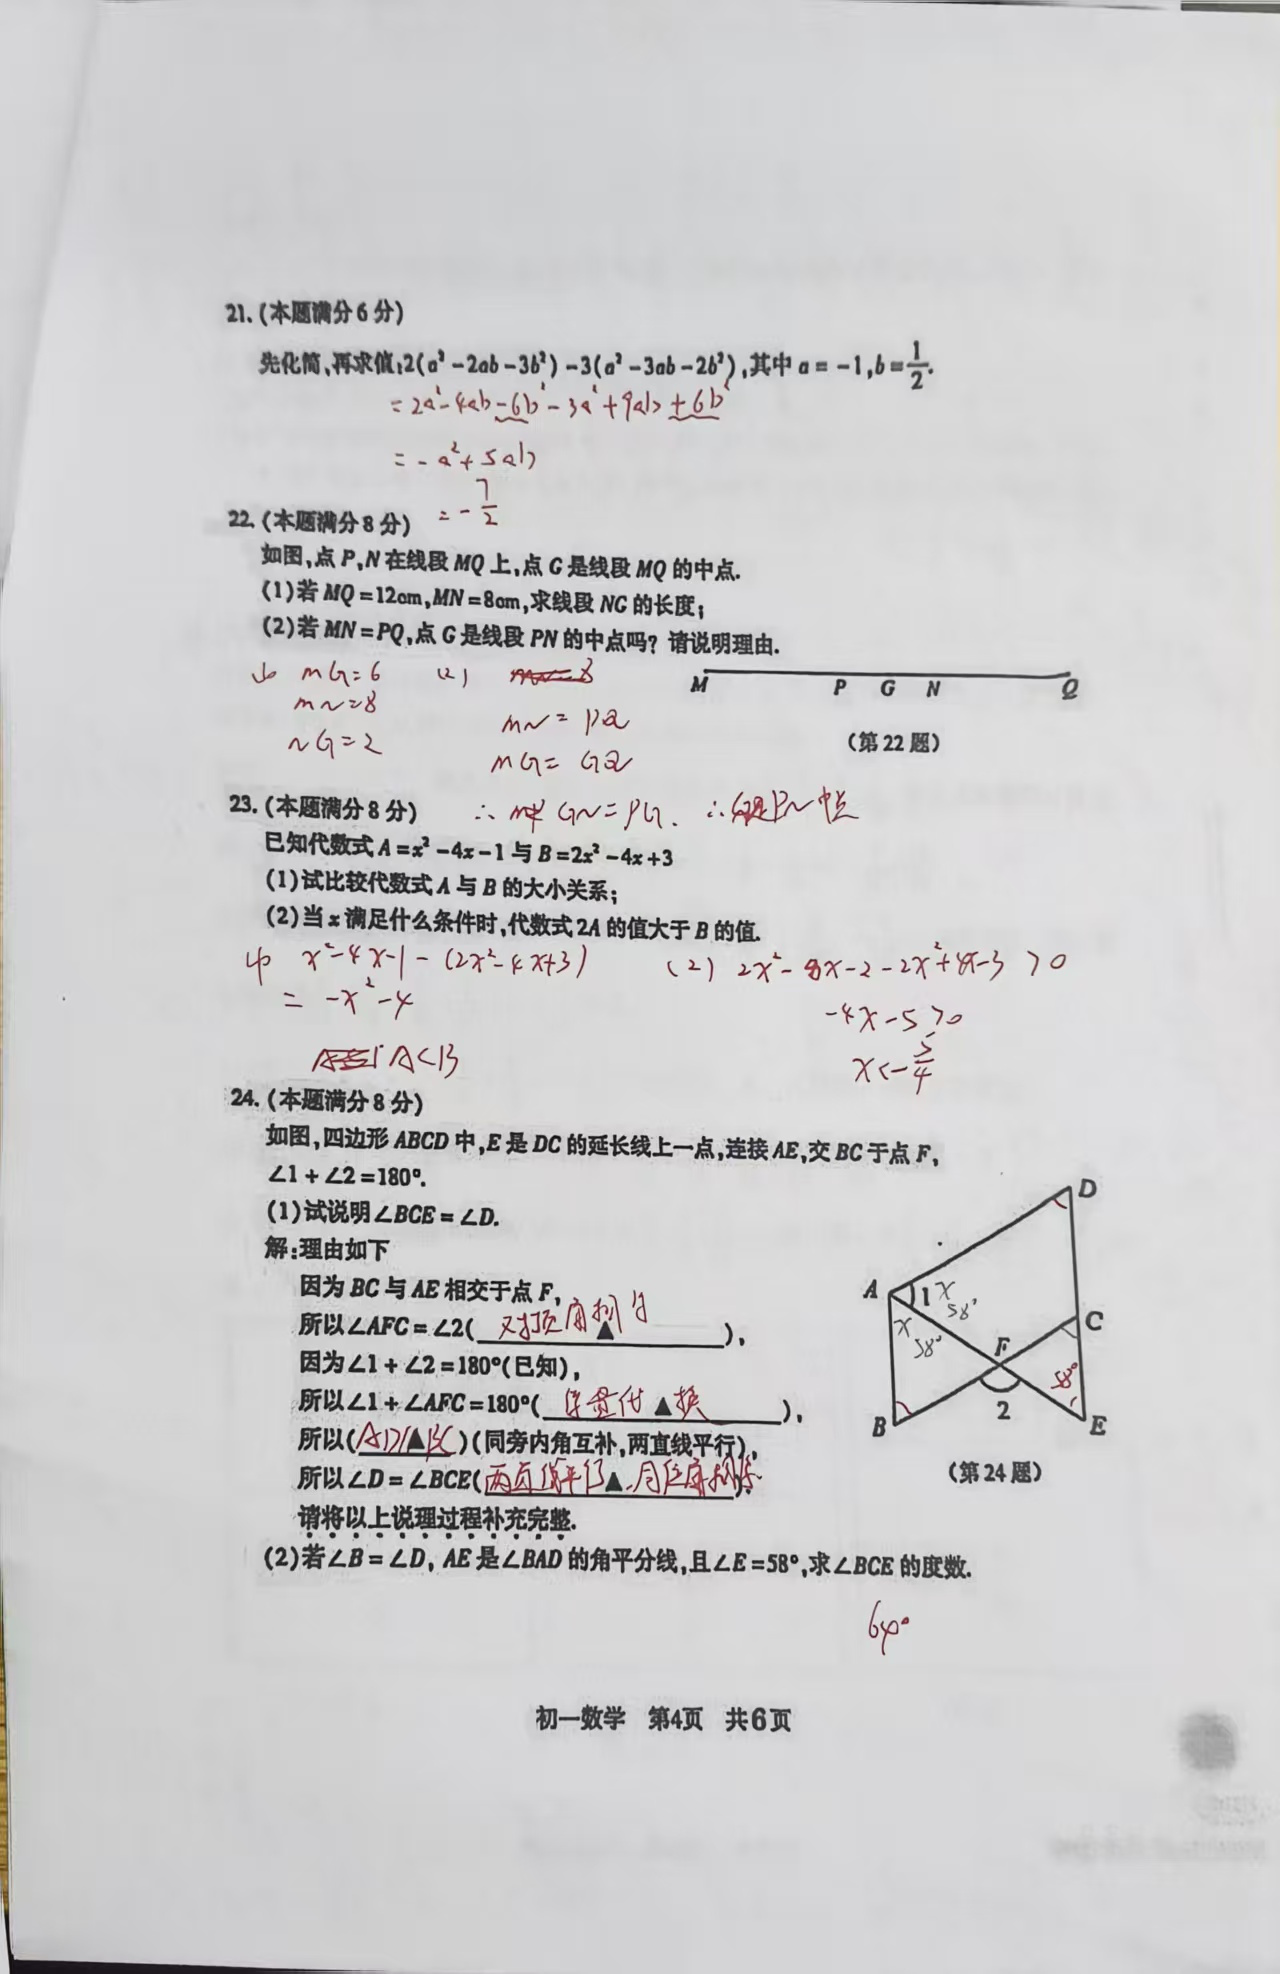 21.(本题满分6分)
先化简,再求值:2(a²-2ab-3b²)-3(a²-3ab-2b²),其中a=-1,b=1/2.
=2a²-4ab-6b²-3a²+9ab+6b²
=-a²+5ab
=-7/2
22.(本题满分8分)
如图,点P,N在线段MQ上,点G是线段MQ的中点.
(1)若MQ=12cm,MN=8cm,求线段NG的长度;
(2)若MN=PQ,点G是线段PN的中点吗?请说明理由.
(1) MG=6
MN=8
NG=2
(2)
MN=PQ
MG=GQ
∴ GN=PG. ∴G是PN中点
M P G N Q
(第22题)
23.(本题满分8分)
已知代数式A=x²-4x-1与B=2x²-4x+3
(1)试比较代数式A与B的大小关系;
(2)当x满足什么条件时,代数式2A的值大于B的值.
(1) x²-4x-1-(2x²-4x+3)
=-x²-4
A<B
(2) 2x²-8x-2-2x²+4x-3>0
-4x-5>0
x<-5/4
24.(本题满分8分)
如图,四边形ABCD中,E是DC的延长线上一点,连接AE,交BC于点F,
∠1+∠2=180°.
(1)试说明∠BCE=∠D.
解:理由如下
因为BC与AE相交于点F,
所以∠AFC=∠2(对顶角相等▲),
因为∠1+∠2=180°(已知),
所以∠1+∠AFC=180°(等量代▲换),
所以(AD//▲BC)(同旁内角互补,两直线平行),
所以∠D=∠BCE(两直线平行▲.同位角相等).
请将以上说理过程补充完整.
(2)若∠B=∠D,AE是∠BAD的角平分线,且∠E=58°,求∠BCE的度数.
64°
D
A 1 x 58°
x 58°
C
F
58°
B 2 E
(第24题)
初一数学 第4页 共6页